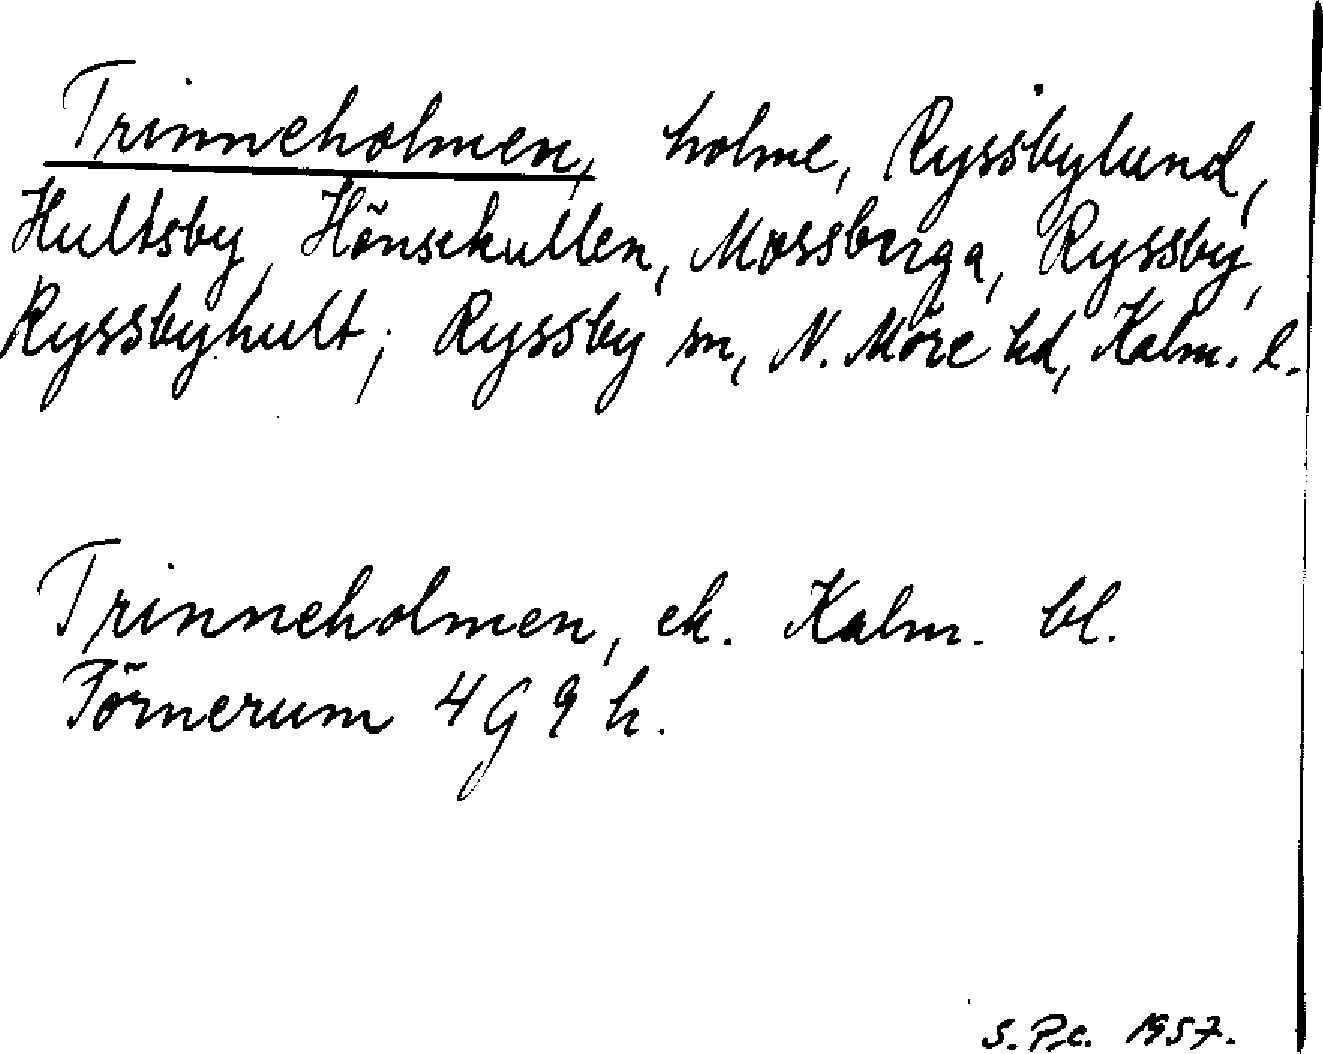 Trinneholmen, holme, Ryssbylund,
Hultsby, Hönsekullen, Mossberga, Ryssby,
Ryssbyhult; Ryssby sn, N. Möre hd, Kalm. l.
Trinneholmen, ek. Kalm. bl.
Törnerum 4 G 9 h.
S. P:c. 1957.